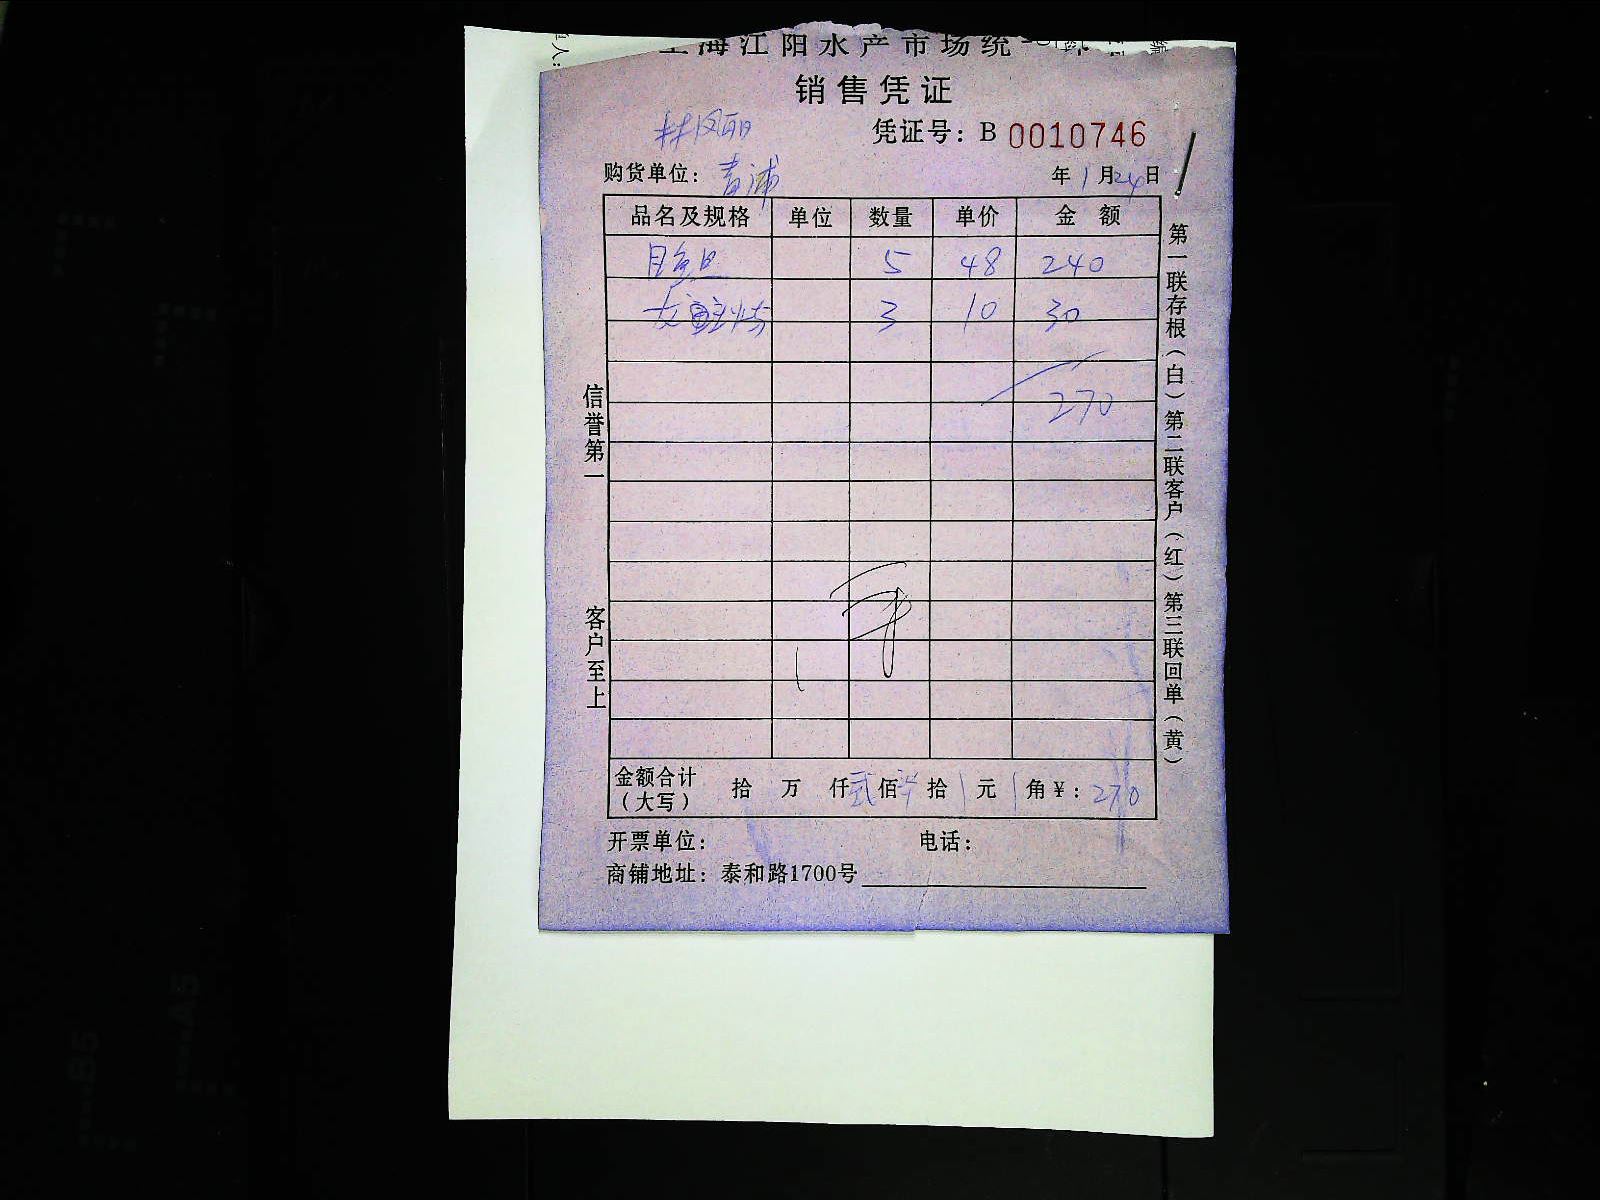 上海江阳水产市场统一
销售凭证
林凤丽
凭证号：B 0010746
购货单位：青浦
年1月24日
品名及规格 单位 数量 单价 金额
目鱼旦 5 48 240
3 10 30
270
信誉第一
客户至上
第一联存根（白）第二联客户（红）第三联回单（黄）
金额合计（大写） 拾 万 仟贰佰 拾 元 角¥：270
开票单位： 电话：
商铺地址：泰和路1700号